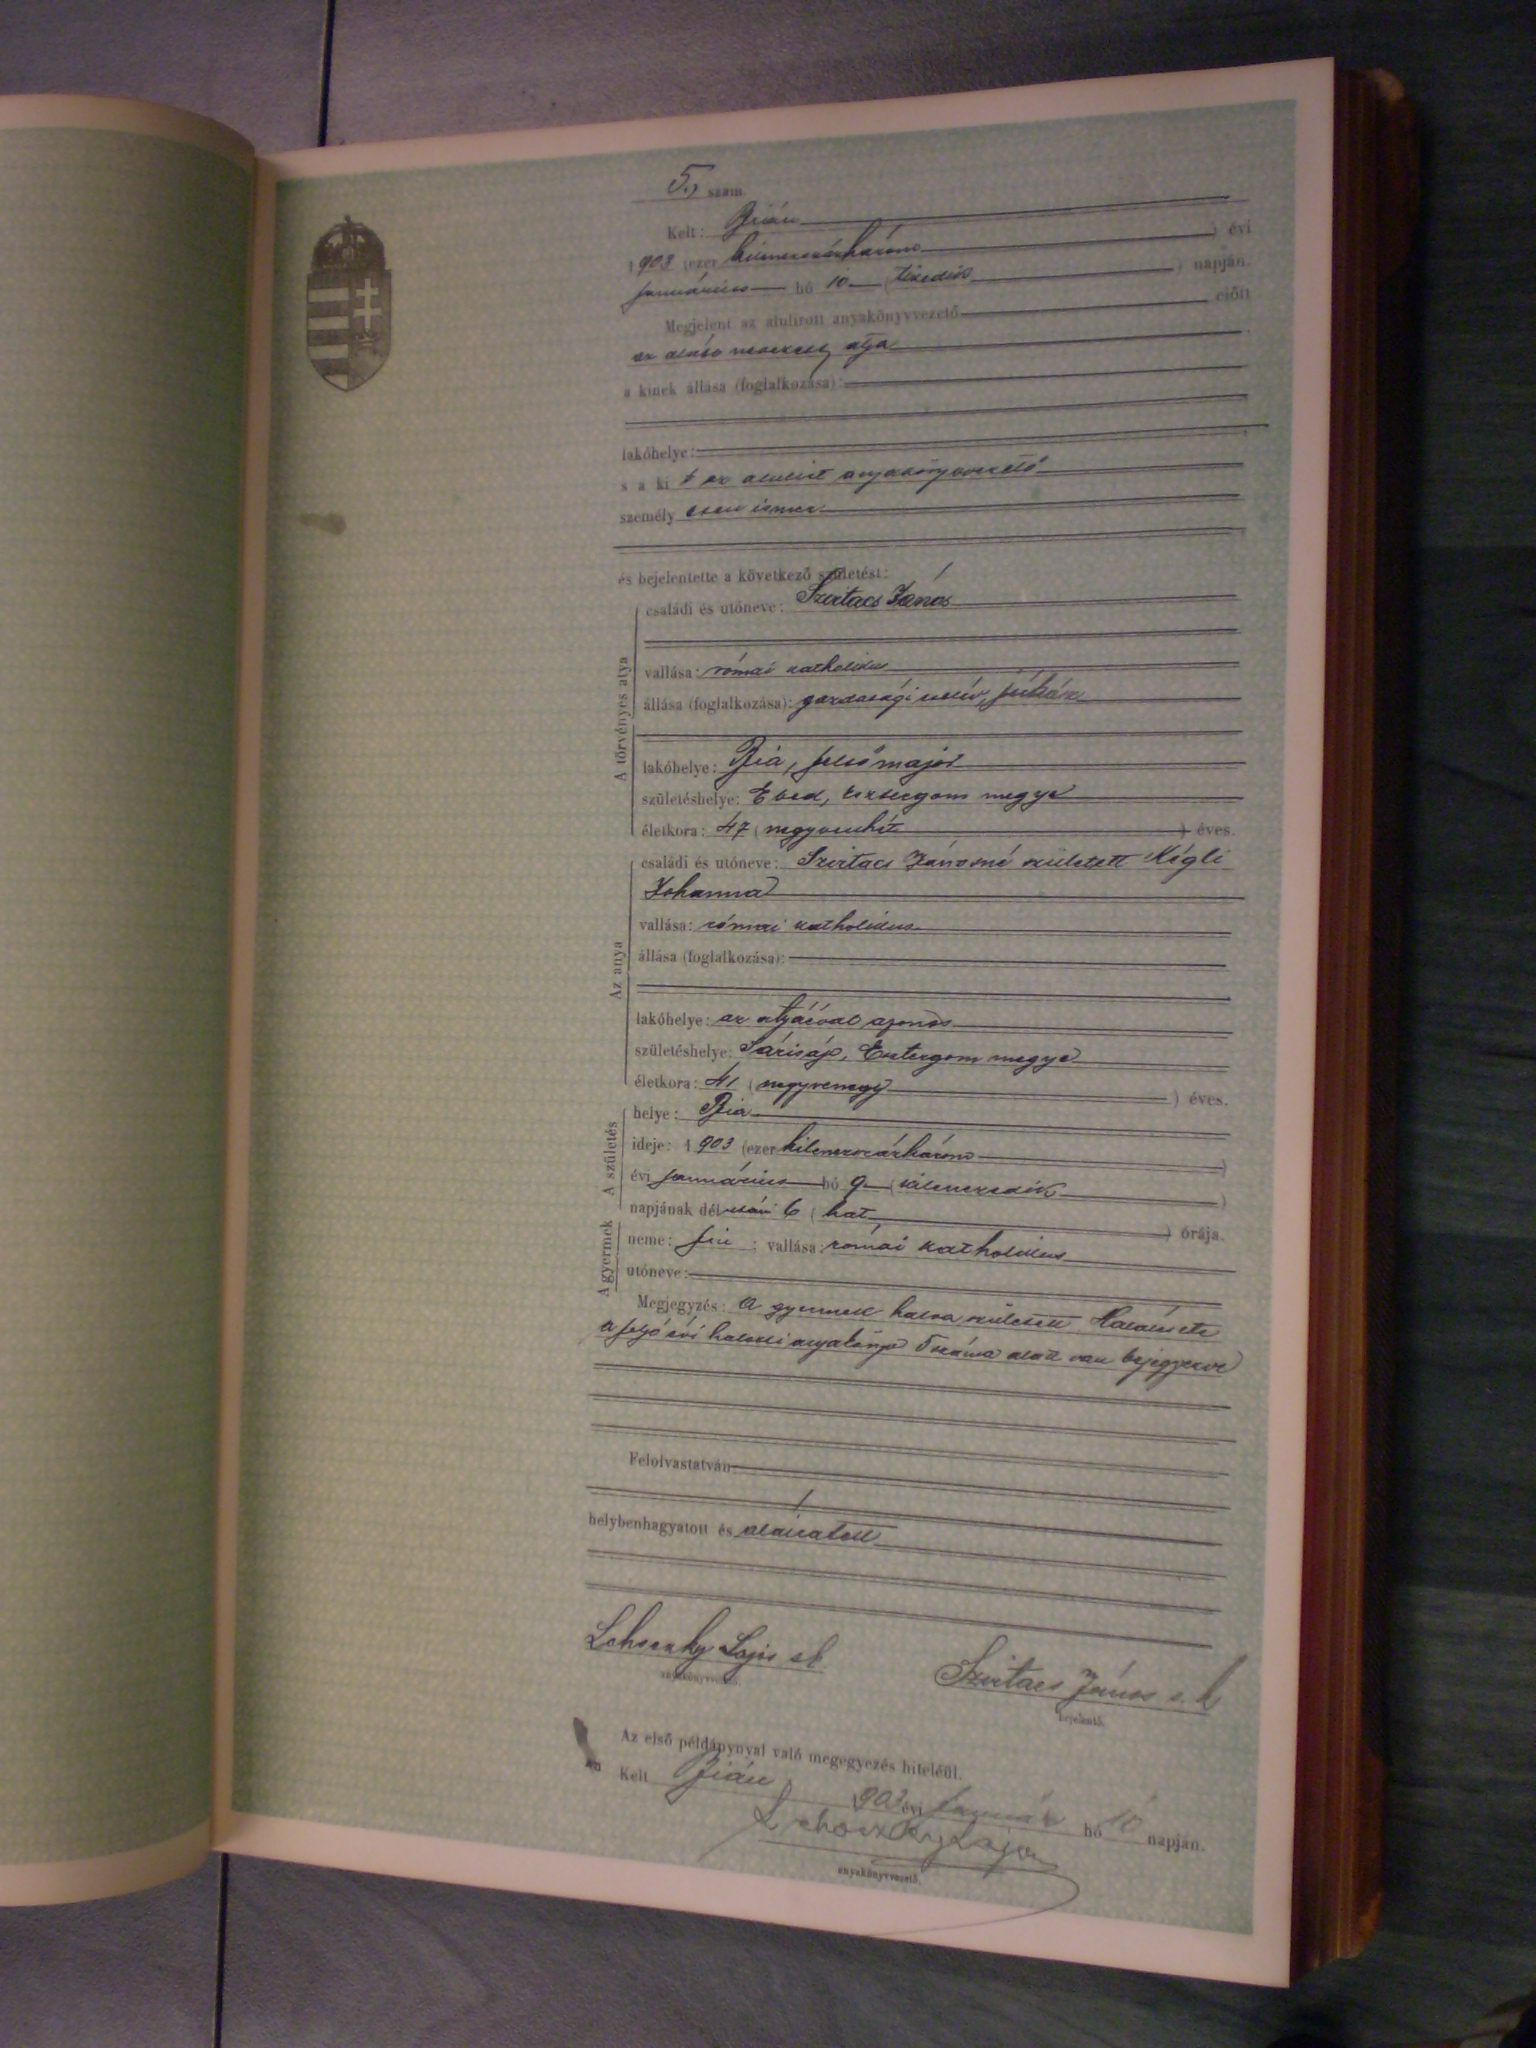 5., szám.
Kelt: Bián
1903 (ezer kilenczszázhárom) évi
január hó 10 (tizedik) napján.
Megjelent az alulirott anyakönyvvezető előtt
atja
a kinek állása (foglalkozása):
lakóhelye:
s a ki t az alulirt anyakönyvvezető
személy esen ismer.
és bejelentette a következő születést:
A törvényes atya
családi és utóneve: Szirtacs János
vallása: római katholikus
állása (foglalkozása): gazdasági cseléd, juhász
lakóhelye: Bia, felsőmajor
születéshelye: Ebed, Esztergom megye
életkora: 47 (negyvenhét) éves.
Az anya
családi és utóneve: Szirtacs Jánosné született Kégli
Johanna
vallása: római katholikus
állása (foglalkozása):
lakóhelye: az atyáéval azonos
születéshelye: Sárisáp, Esztergom megye
életkora: 41 (negyvenegy) éves.
A születés
helye: Bia
ideje: 1903 (ezer kilenczszázhárom)
évi január hó 9 (kilenczedik)
napjának dél után 6 (hat) órája.
A gyermek
neme: fiu ; vallása: római katholikus
utóneve:
Megjegyzés: A gyermek halva született. Halálesete
a folyó évi halotti anyakönyv 5 száma alatt van bejegyezve
Felolvastatván
helybenhagyatott és aláiratott
Lehoczky Lajos sk
anyakönyvvezető.
Szirtacs János s. k
bejelentő.
Az első példánynyal való megegyezés hiteléül.
Kelt Bián 1903 évi január hó 10 napján.
Lehoczky Lajos
anyakönyvvezető.